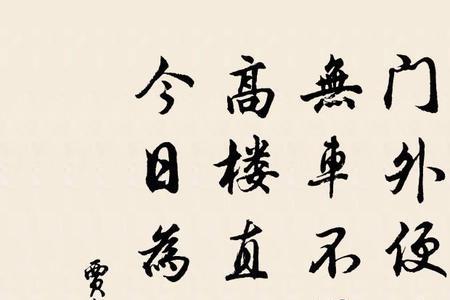 门外便
無車不
高楼直
今日為
賈